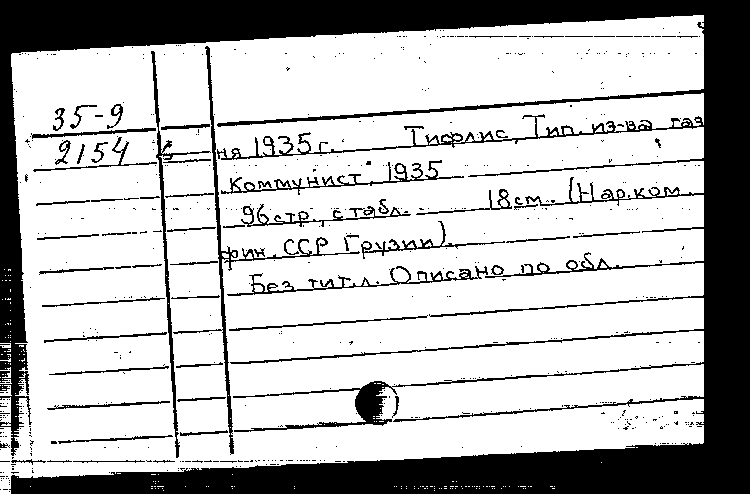 35-9
2154
ня 1935 г. Тифлис, Тип. из-ва газ
Коммунист", 1935
96 стр., с табл. 18 см. (Нар. ком.
фин. ССР Грузии).
Без тит. л. Описано по обл.